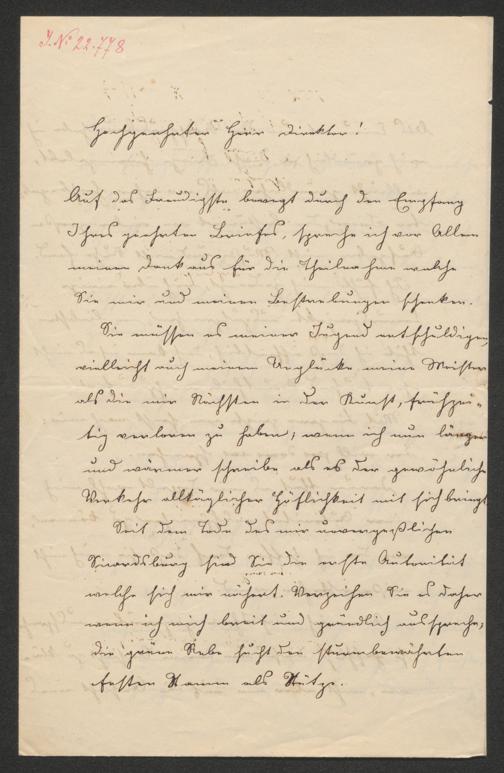 J. N° 22.778
Hochgeehrter Herr Direktor!
Auf das Freudigste bewegt durch den Empfang
Ihres geehrten Briefes, spreche ich vor Allem
meinen Dank aus für die Theilnahme welche
Sie mir und meinen Bestrebungen schenken.
Sie müssen es meiner Jugend entschuldigen,
vielleicht auch meinem Unglücke meine Meister
als die mir Nächsten in der Kunst, frühzei-
tig verloren zu haben, wenn ich nun länger
und wärmer schreibe als es der gewöhnliche
Verkehr alltäglicher Höflichkeit mit sich bringt.
Seit dem Tode des mir unvergeßlichen
sind Sie die erste Autorität
welche sich mir nähert. Verzeihen Sie es daher
wenn ich mich breit und gründlich ausspreche,
die grüne Rebe sucht den sturmbewährten
festen Stamm als Stütze.